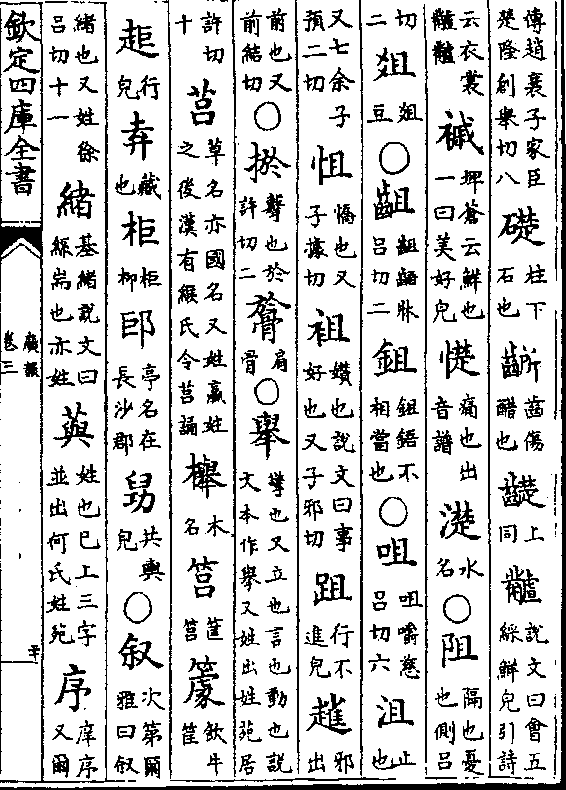 傳趙襄子家臣楚隆創舉切八 礎柱下石也 齭齒傷醋也 齼上同 𪓐說文曰會五綵鮮皃引詩
云衣裳𪓐𪓐 𧝐埤蒼云鮮也一曰美好皃 憷痛也出音譜 濋水名 ○阻隔也憂也側呂
切二 俎俎豆 ○齟齟齬牀呂切二 鉏鉏鋙不相當也 ○咀咀嚼慈呂切六 沮止也
又七余子預二切 怚憍也又子據切 袓㜺也說文曰事好也又子邪切 跙行不進皃 𧽕邪出
前也又前結切 ○㧒擊也於許切二 䯓肩骨 ○舉擎也又立也言也動也說文本作擧又姓出姓苑居
許切十 莒草名亦國名又姓嬴姓之後漢有緱氏令莒誦 櫸木名 筥筐筥 簴飲牛筐
𧺹行皃 弆藏也 柜柜柳 𨙲亭名在長沙郡 𦥯共輿皃 ○叙次第爾雅曰叙
緒也又姓徐呂切十一 緒基緒說文曰絲耑也亦姓 藇姓也巳上三字並出何氏姓苑 序庠序又爾
欽定四庫全書
廣韻
卷三